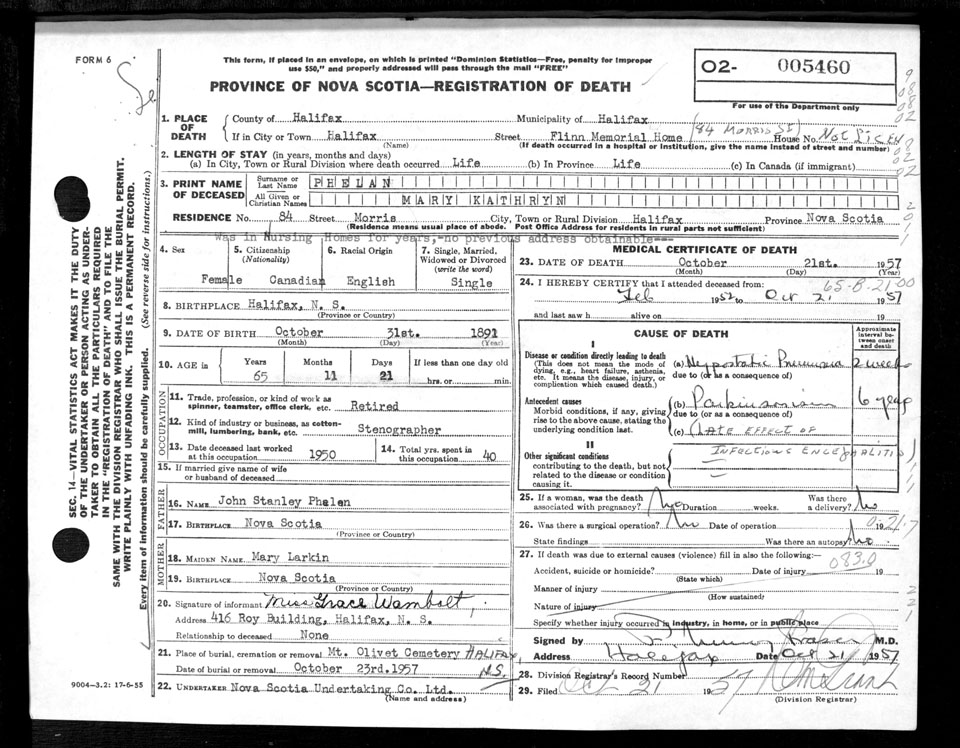 FORM 6
This form, if placed in an envelope, on which is printed "Dominion Statistics—Free, penalty for improper
use $50," and properly addressed will pass through the mail "FREE"
PROVINCE OF NOVA SCOTIA—REGISTRATION OF DEATH
O2- 005460
For use of the Department only
1. PLACE OF DEATH
County of Halifax Municipality of Halifax
(84 MORRIS ST)
If in City or Town Halifax Street Flinn Memorial Home House No. NOT GIVEN
(Name) (If death occurred in a hospital or institution, give the name instead of street and number)
2. LENGTH OF STAY (in years, months and days)
(a) In City, Town or Rural Division where death occurred Life (b) In Province Life (c) In Canada (if immigrant)
3. PRINT NAME OF DECEASED
Surname or Last Name PHELAN
All Given or Christian Names MARY KATHRYN
RESIDENCE No. 84 Street Morris City, Town or Rural Division Halifax Province Nova Scotia
(Residence means usual place of abode. Post Office Address for residents in rural parts not sufficient)
Was in Nursing Homes for years,-no previous address obtainable---
4. Sex Female
5. Citizenship (Nationality) Canadian
6. Racial Origin English
7. Single, Married, Widowed or Divorced (write the word) Single
8. BIRTHPLACE Halifax, N. S.
(Province or Country)
9. DATE OF BIRTH October 31st. 1891
(Month) (Day) (Year)
10. AGE in Years 65 Months 11 Days 21 If less than one day old
hrs. or min.
OCCUPATION
11. Trade, profession, or kind of work as
spinner, teamster, office clerk, etc. Retired
12. Kind of industry or business, as cotton-
mill, lumbering, bank, etc. Stenographer
13. Date deceased last worked
at this occupation 1950
14. Total yrs. spent in
this occupation 40
15. If married give name of wife
or husband of deceased
FATHER
16. NAME John Stanley Phelan
17. BIRTHPLACE Nova Scotia
(Province or Country)
MOTHER
18. MAIDEN NAME Mary Larkin
19. BIRTHPLACE Nova Scotia
(Province or Country)
20. Signature of informant Miss Grace Wambolt,
Address 416 Roy Building, Halifax, N. S.
Relationship to deceased None
21. Place of burial, cremation or removal Mt. Olivet Cemetery HALIFAX, N.S.
Date of burial or removal October 23rd.1957
22. UNDERTAKER Nova Scotia Undertaking Co. Ltd.
(Name and address)
9004-3.2: 17-6-55
MEDICAL CERTIFICATE OF DEATH
23. DATE OF DEATH October 21st. 1957
(Month) (Day)
65-B-21-00
24. I HEREBY CERTIFY that I attended deceased from:
Feb 1952 to Oct 21 1957
and last saw h alive on 19
CAUSE OF DEATH
Approximate interval between onset and death
I
Disease or condition directly leading to death
(This does not mean the mode of
dying, e.g., heart failure, asthenia,
etc. It means the disease, injury, or
complication which caused death.)
(a) Hypostatic Pneumonia 2 weeks
due to (or as a consequence of)
Antecedent causes
Morbid conditions, if any, giving
rise to the above cause, stating the
underlying condition last.
(b) Parkinsonism 6 years
due to (or as a consequence of)
(c) (LATE EFFECT OF
INFECTIOUS ENCEPHALITIS)
II
Other significant conditions
contributing to the death, but not
related to the disease or condition
causing it.
25. If a woman, was the death
associated with pregnancy? No Duration weeks.
Was there
a delivery? No
26. Was there a surgical operation? No Date of operation 19
State findings Was there an autopsy? No
27. If death was due to external causes (violence) fill in also the following:—
083.0
Accident, suicide or homicide? Date of injury 19
(State which)
Manner of injury
(How sustained)
Nature of injury
Specify whether injury occurred in industry, in home, or in public place
Signed by M.D.
Address Halifax Date Oct 21 1957
28. Division Registrar's Record Number
29. Filed Oct 21 1957
(Division Registrar)
SEC. 14—VITAL STATISTICS ACT MAKES IT THE DUTY
OF THE UNDERTAKER OR PERSON ACTING AS UNDER-
TAKER TO OBTAIN ALL THE PARTICULARS REQUIRED
IN THE "REGISTRATION OF DEATH" AND TO FILE THE
SAME WITH THE DIVISION REGISTRAR WHO SHALL ISSUE THE BURIAL PERMIT.
WRITE PLAINLY WITH UNFADING INK. THIS IS A PERMANENT RECORD.
Every item of information should be carefully supplied. (See reverse side for instructions.)